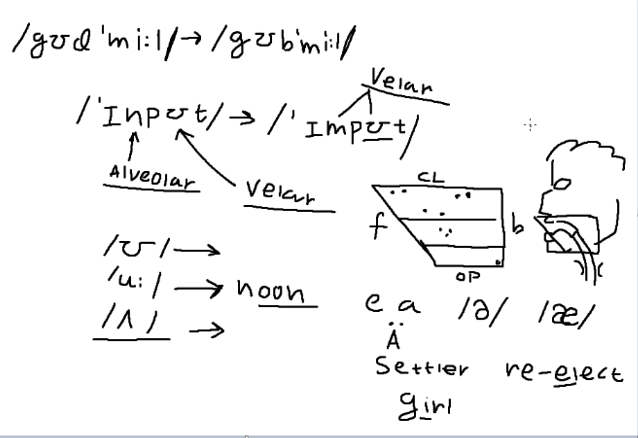 /gʊd 'mi:l/→/gʊb'mi:l/
Velar
/'Inpʊt/→/'Impʊt/
Alveolar
Velar
CL
f b
OP
/ʊ/→
/u:/→ noon
/ʌ/→
e a /ə/ /æ/
Ä
Settler re-eject
girl